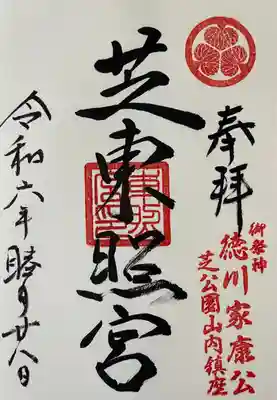 奉拝
御祭神
徳川家康公
芝公園山内鎮座
芝東照宮
令和六年睦月廿八日